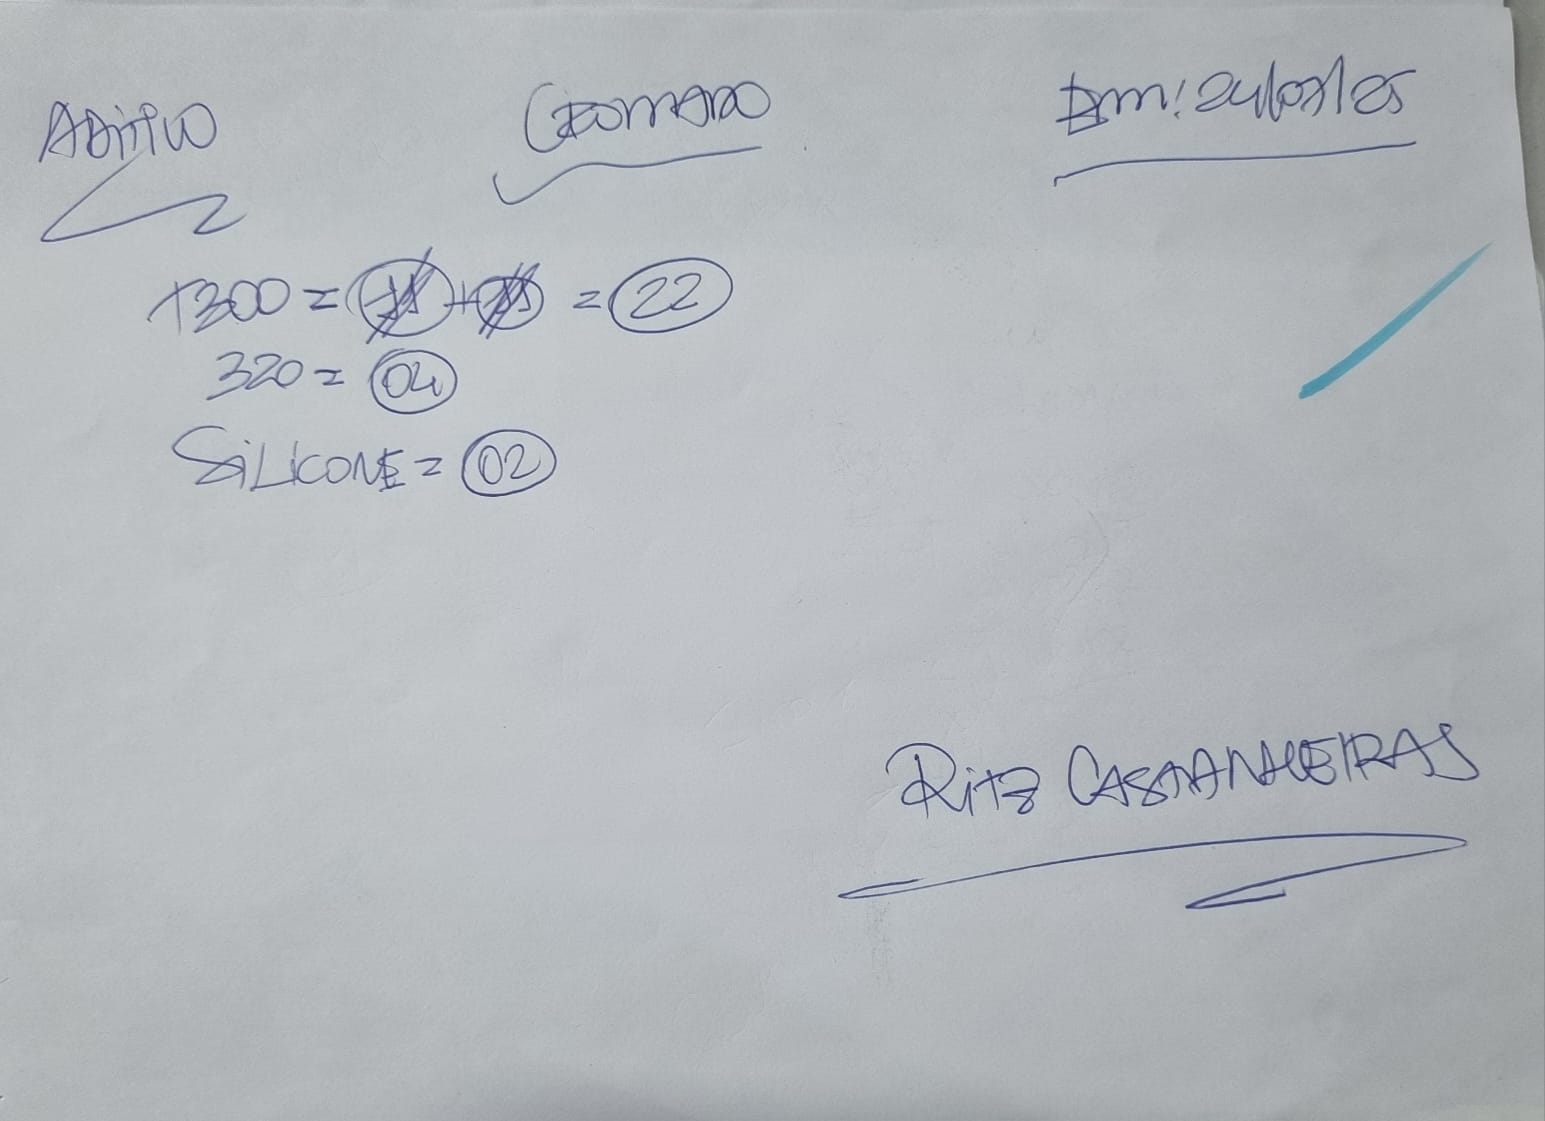 ADITIVO GEOMARO Em: 24/07/25
T300 = = 22
320 = 04
SILICONE = 02
Ritz CASTANHEIRAS